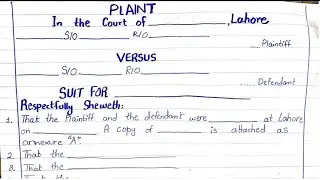 PLAINT
In the Court of____________,Lahore
__________S/O__________R/O__________
....Plaintiff
VERSUS
__________S/O__________R/O__________
....Defendant
SUIT FOR ______________
Respectfully Sheweth:
1. That the Plaintiff and the defendant were________ at Lahore
on__________ A copy of ________ is attached as
annexure "A".
2. That the ______________
3. That the ______________